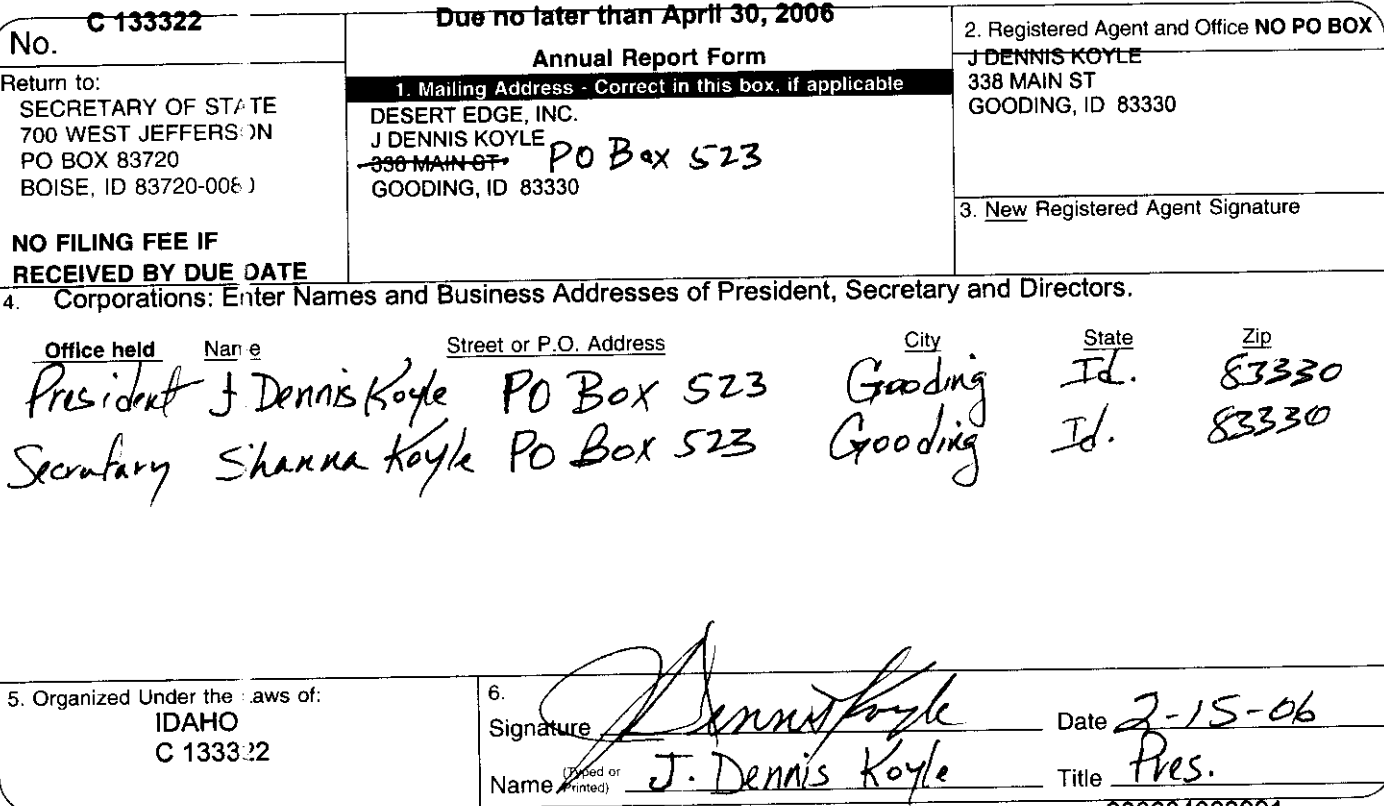 No. C 133322
Due no later than April 30, 2006
Annual Report Form
Return to:
SECRETARY OF STATE
700 WEST JEFFERSON
PO BOX 83720
BOISE, ID 83720-0080
NO FILING FEE IF
RECEIVED BY DUE DATE
1. Mailing Address - Correct in this box, if applicable
DESERT EDGE, INC.
J DENNIS KOYLE
338 MAIN ST PO Box 523
GOODING, ID 83330
2. Registered Agent and Office NO PO BOX
J DENNIS KOYLE
338 MAIN ST
GOODING, ID 83330
3. New Registered Agent Signature
4. Corporations: Enter Names and Business Addresses of President, Secretary and Directors.
Office held Name Street or P.O. Address City State Zip
President J Dennis Koyle PO Box 523 Gooding Id. 83330
Secratary Shanna Koyle PO Box 523 Gooding Id. 83330
5. Organized Under the Laws of:
IDAHO
C 133322
6.
Signature J Dennis Koyle Date 2-15-06
Name (Typed or Printed) J. Dennis Koyle Title Pres.